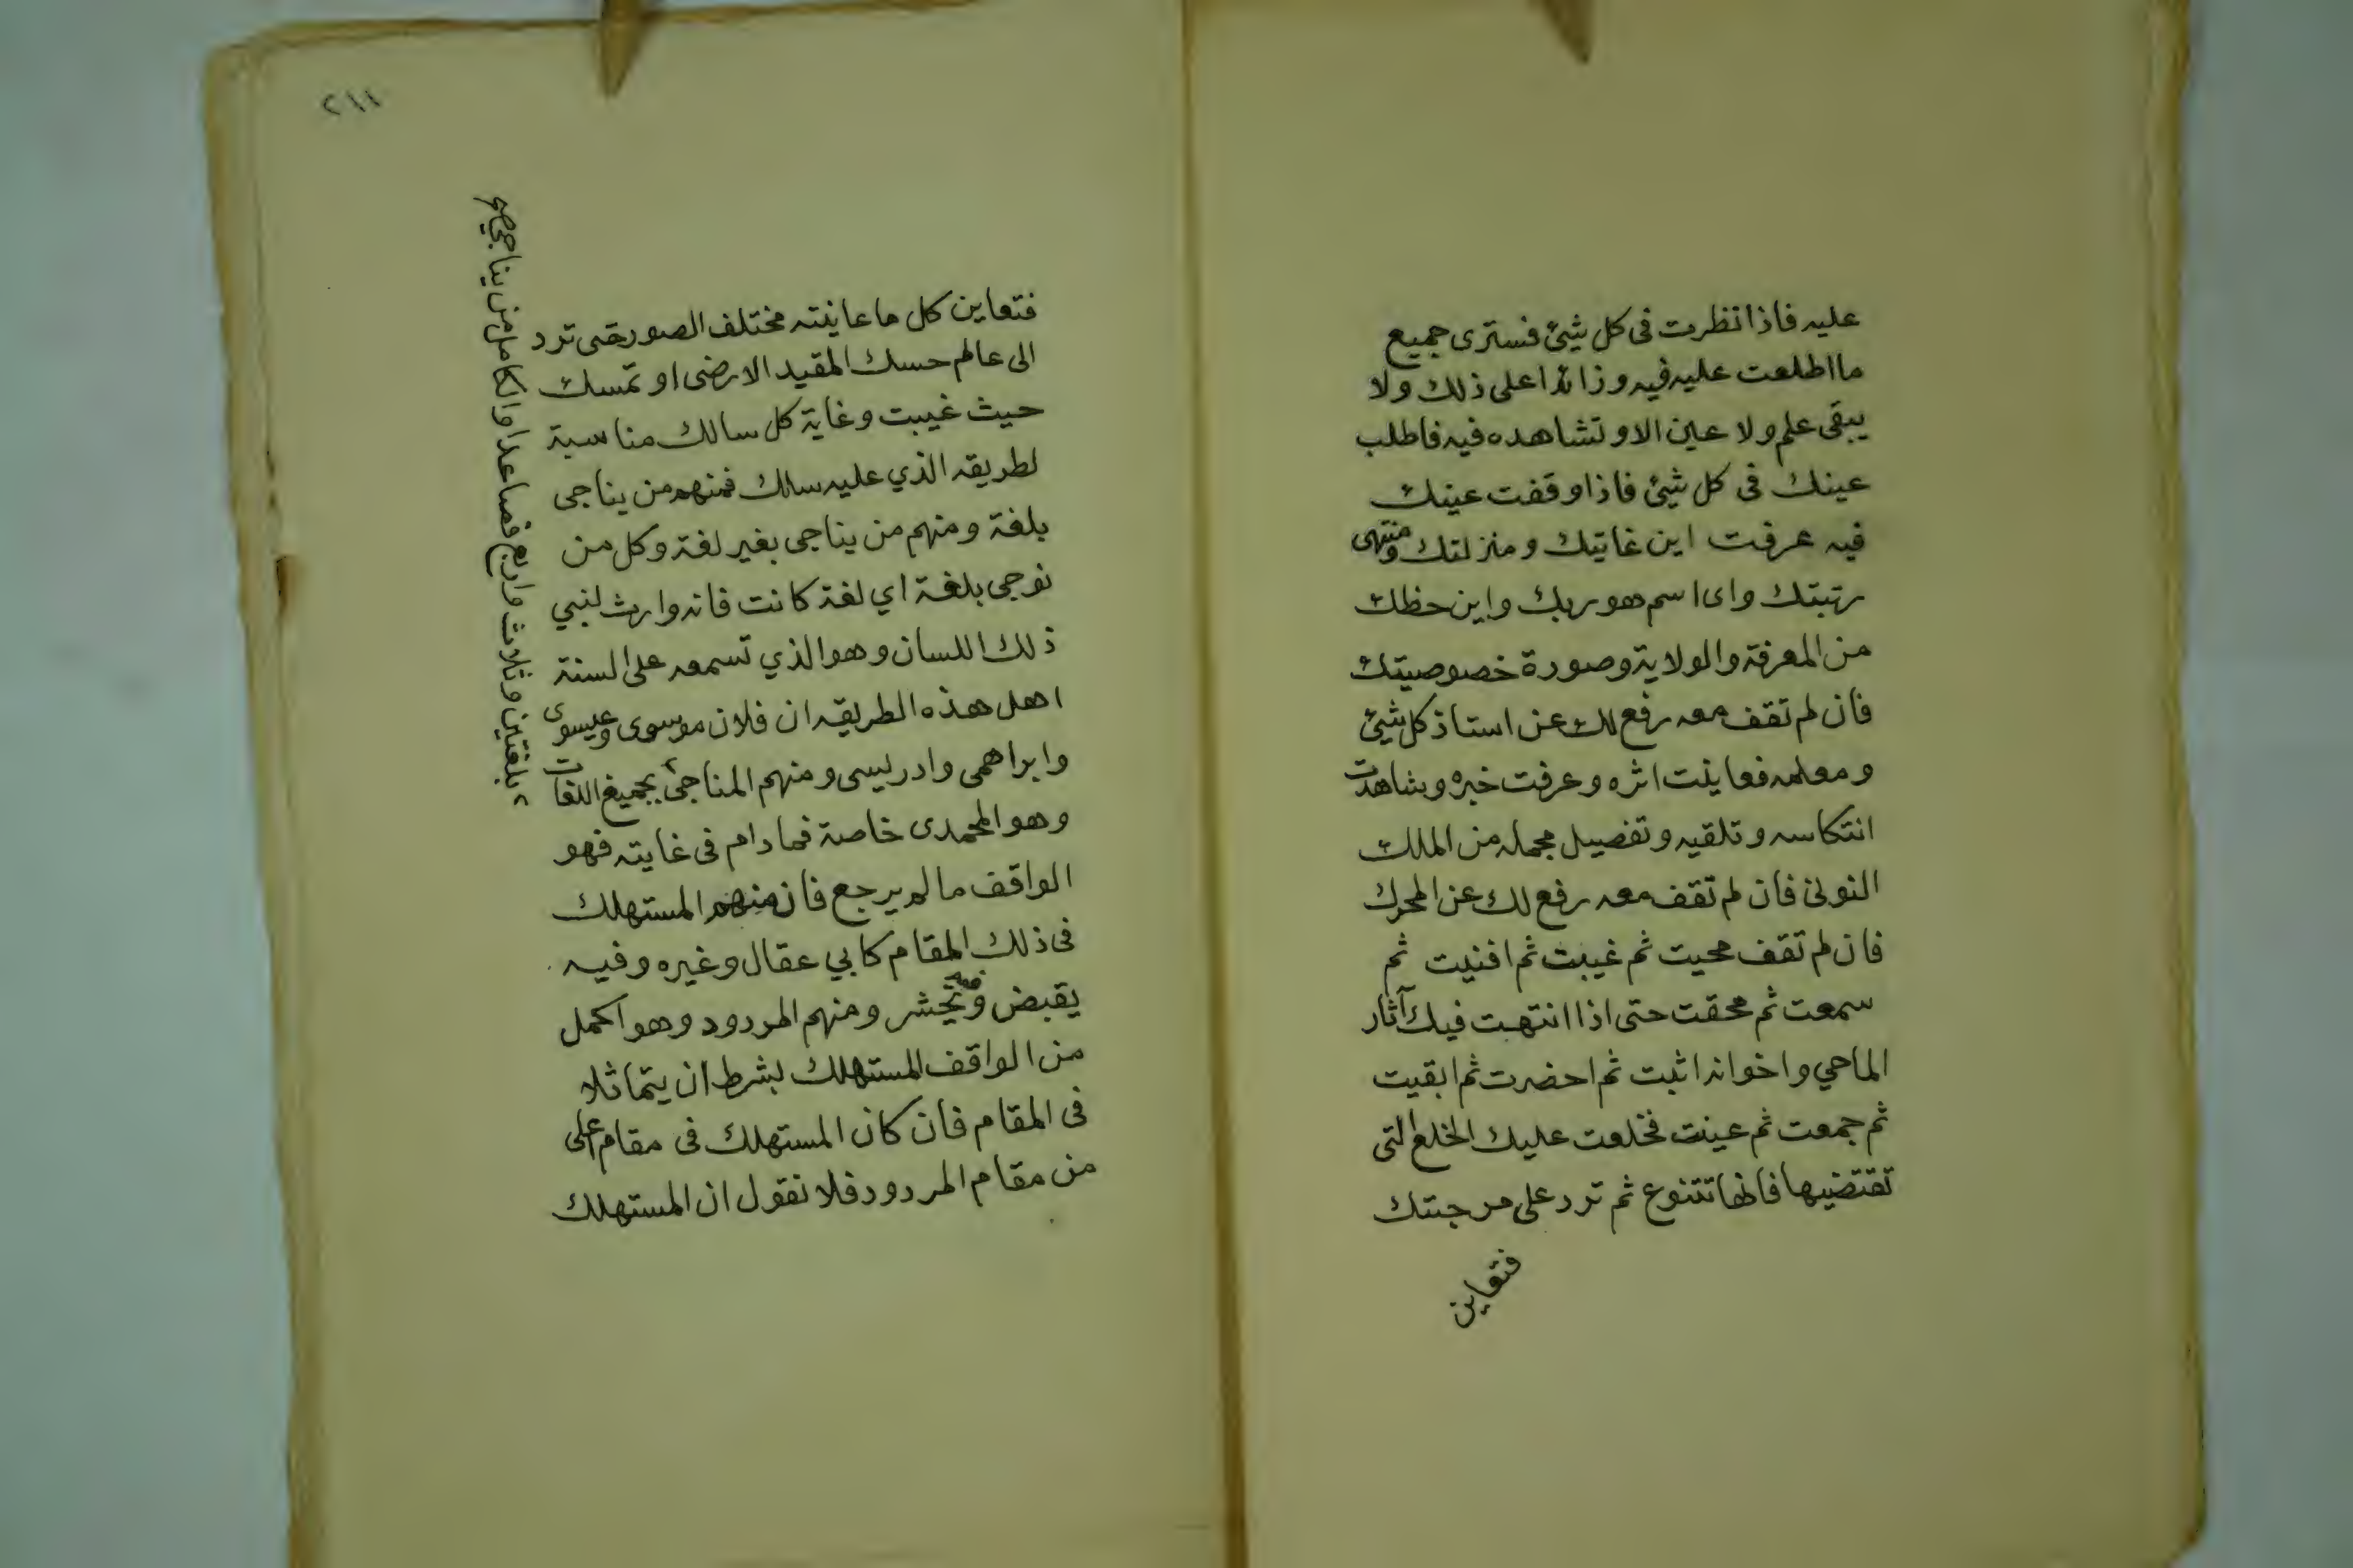 عليه فاذا نظرت فى كل شيئ فسترى جميع
ما اطلعت عليه فيه وزائدا على ذلك ولا
يبقى علم ولا عين الا وتشاهده فيه فاطلب
عينك فى كل شيئ فاذا وقفت عينك
فيه عرفت اين غايتك ومنزلتك ومنتهى
رتبتك واى اسم هو ربك واين حظك
من المعرفة والولاية وصورة خصوصيتك
فان لم تقف معه رفع لك عن استاذ كل شيئ
ومعلمه فعاينت اثره وعرفت خبره وشاهدت
انتكاسه وتلقيه وتفصيل مجمله من الملك
النونى فان لم تقف معه رفع لك عن المحرك
فان لم تقف محيت ثم غيبت ثم افنيت ثم
سمعت ثم محقت حتى اذا انتهت فيك آثار
الماحي واخوانه اثبت ثم احضرت ثم ابقيت
ثم جمعت ثم عينت فخلعت عليك الخلع التى
تقتضيها فانها تتنوع ثم ترد على مرجتتك
فتعاين
٢١١
فتعاين كل ما عاينته مختلف الصور حتى ترد
الى عالم حسك المقيد الارضى او تمسك
حيث غيبت وغاية كل سالك مناسبة
لطريقه الذي عليه سالك فمنهم من يناجى
بلغة ومنهم من يناجى بغير لغة وكل من
نوجى بلغة اي لغة كانت فانه وارث لنبي
ذلك اللسان وهو الذي تسمعه على السنة
اهل هذه الطريقه ان فلان موسوى وعيسوى
وابراهمى وادريسى ومنهم المناجى بجميع اللغات
وهو المحمدى خاصة فما دام فى غايته فهو
الواقف ما لم يرجع فان منهم المستهلك
فى ذلك المقام كابي عقال وغيره وفيه
يقبض ويحشر ومنهم المردود وهو اكمل
من الواقف المستهلك بشرط ان يتماثلا
فى المقام فان كان المستهلك فى مقام اعلى
من مقام المردود فلا نقول ان المستهلك
بلغتين وثلاث واربع فصاعدا والكامل من يناجى صح